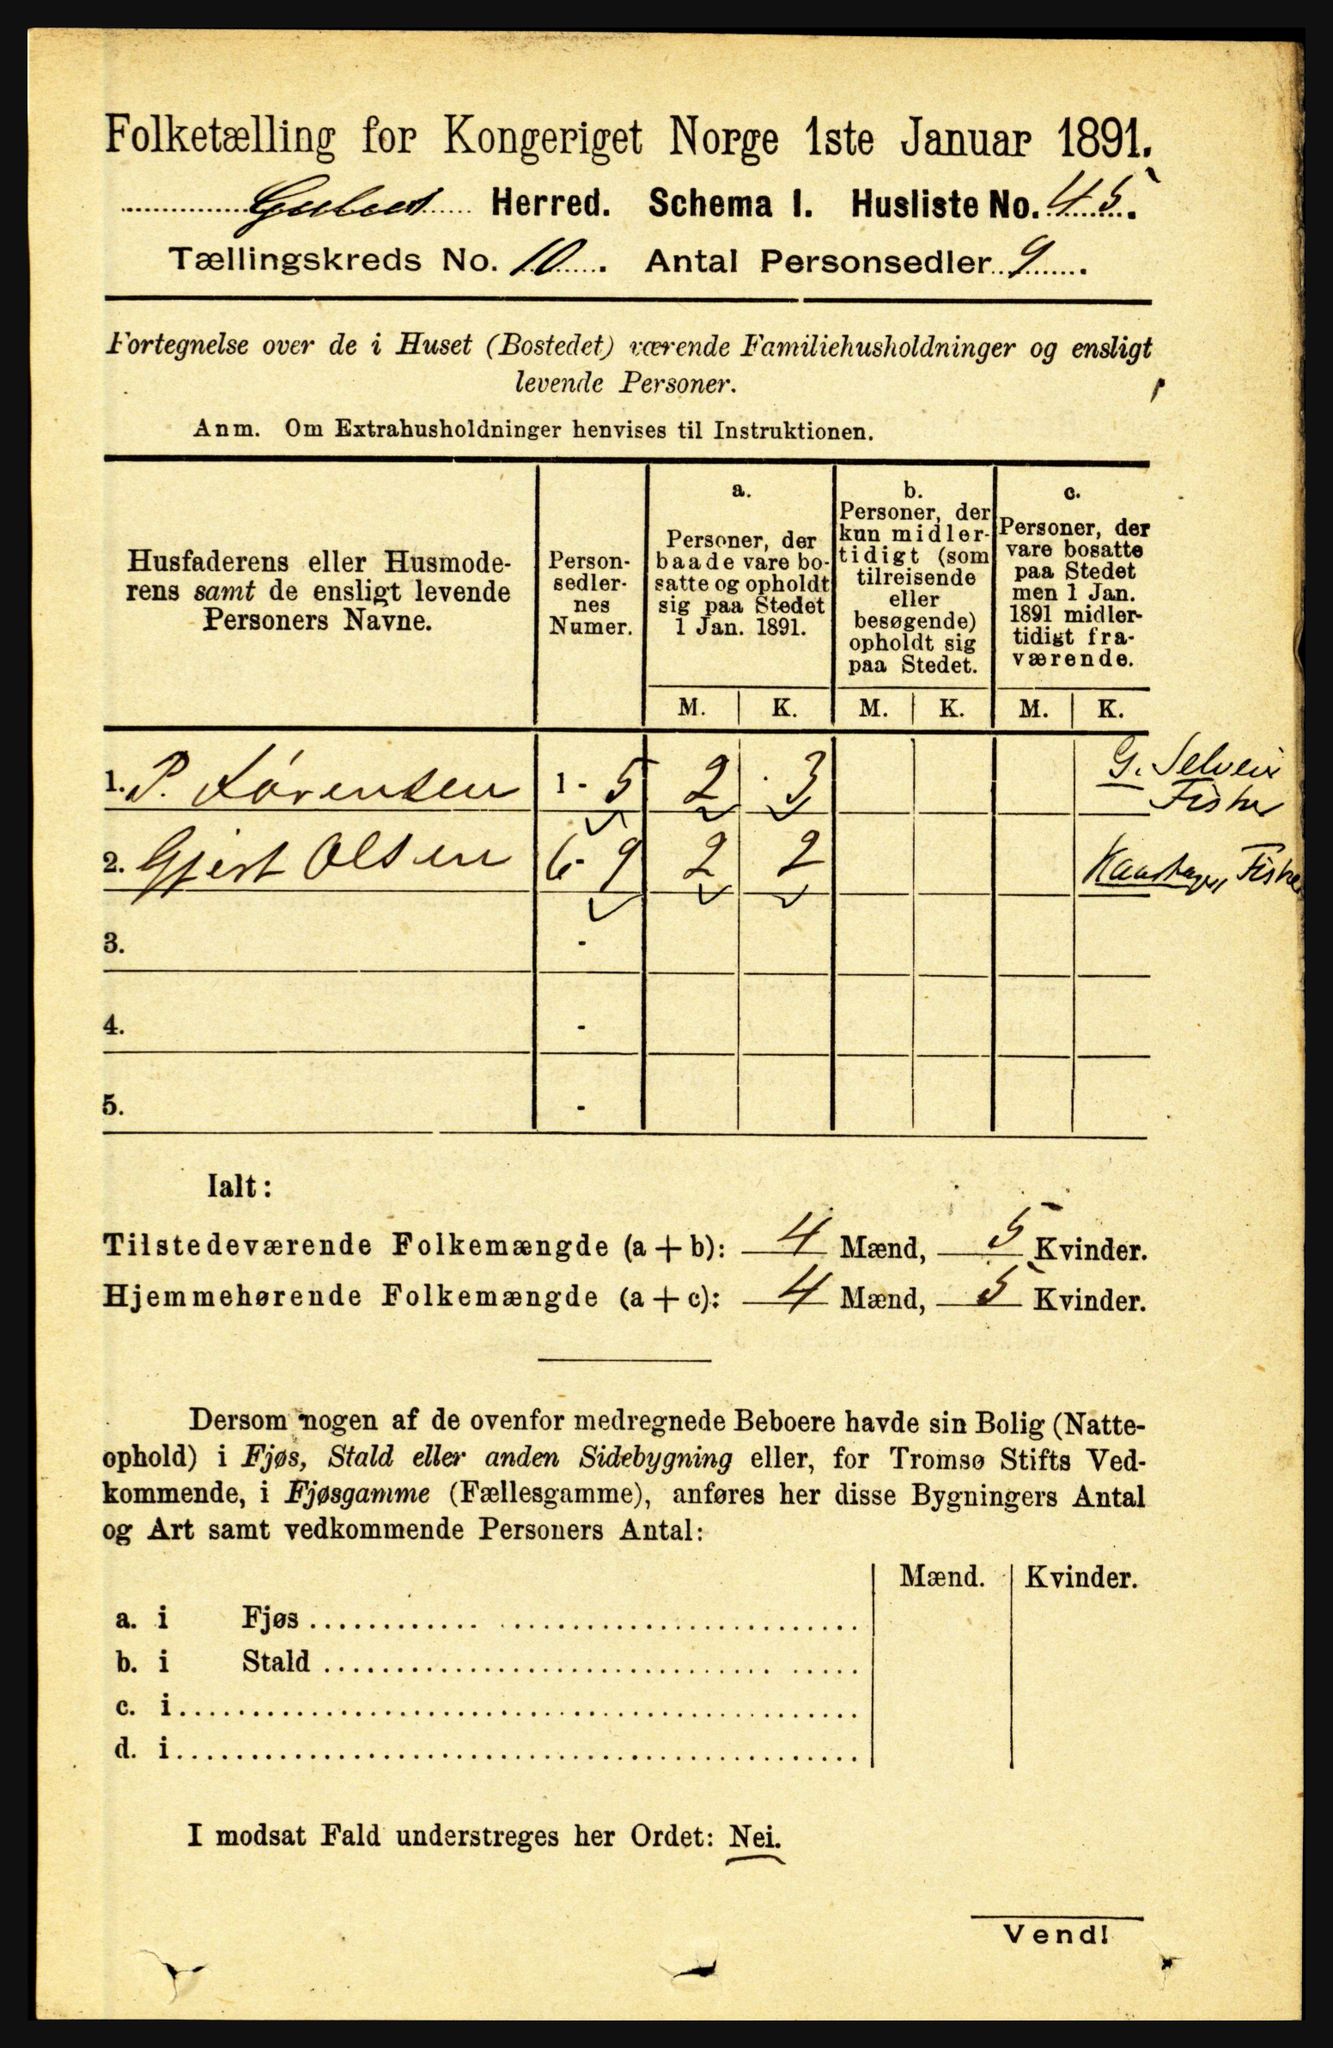 Folketælling for Kongeriget Norge 1ste Januar 1891.
Herred. Schema I. Husliste No. 45.
Tællingskreds No. 10. Antal Personsedler 9.
Fortegnelse over de i Huset (Bostedet) værende Familiehusholdninger og ensligt
levende Personer.
Anm. Om Extrahusholdninger henvises til Instruktionen.
Husfaderens eller Husmode-
rens samt de ensligt levende
Personers Navne.
Person-
sedler-
nes
Numer.
a.
Personer, der
baade vare bo-
satte og opholdt
sig paa Stedet
1 Jan. 1891.
b.
Personer, der
kun midler-
tidigt (som
tilreisende
eller
besøgende)
opholdt sig
paa Stedet.
c.
Personer, der
vare bosatte
paa Stedet
men 1 Jan.
1891 midler-
tidigt fra-
værende.
M. K. M. K. M. K.
1. P. Sørensen 1 - 5 2 3 G. Selveier
Fisker
2. Gjert Olsen 6 - 9 2 2 Fisker
3. -
4. -
5. -
Ialt:
Tilstedeværende Folkemængde (a + b): 4 Mænd, 5 Kvinder.
Hjemmehørende Folkemængde (a + c): 4 Mænd, 5 Kvinder.
Dersom nogen af de ovenfor medregnede Beboere havde sin Bolig (Natte-
ophold) i Fjøs, Stald eller anden Sidebygning eller, for Tromsø Stifts Ved-
kommende, i Fjøsgamme (Fællesgamme), anføres her disse Bygningers Antal
og Art samt vedkommende Personers Antal:
Mænd. Kvinder.
a. i Fjøs
b. i Stald
c. i
d. i
I modsat Fald understreges her Ordet: Nei.
Vend!